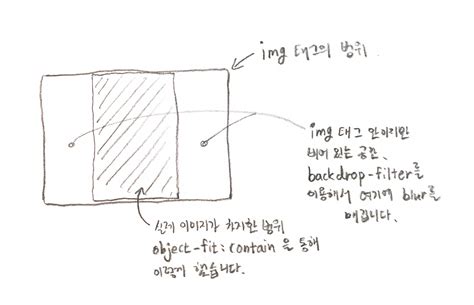 img 태그의 범위
img 태그 안이지만
비어 있는 공간.
backdrop-filter를
이용해서 여기에 blur를
매깁니다.
실제 이미지가 차지한 범위
object-fit: contain 을 통해
이렇게 했습니다.